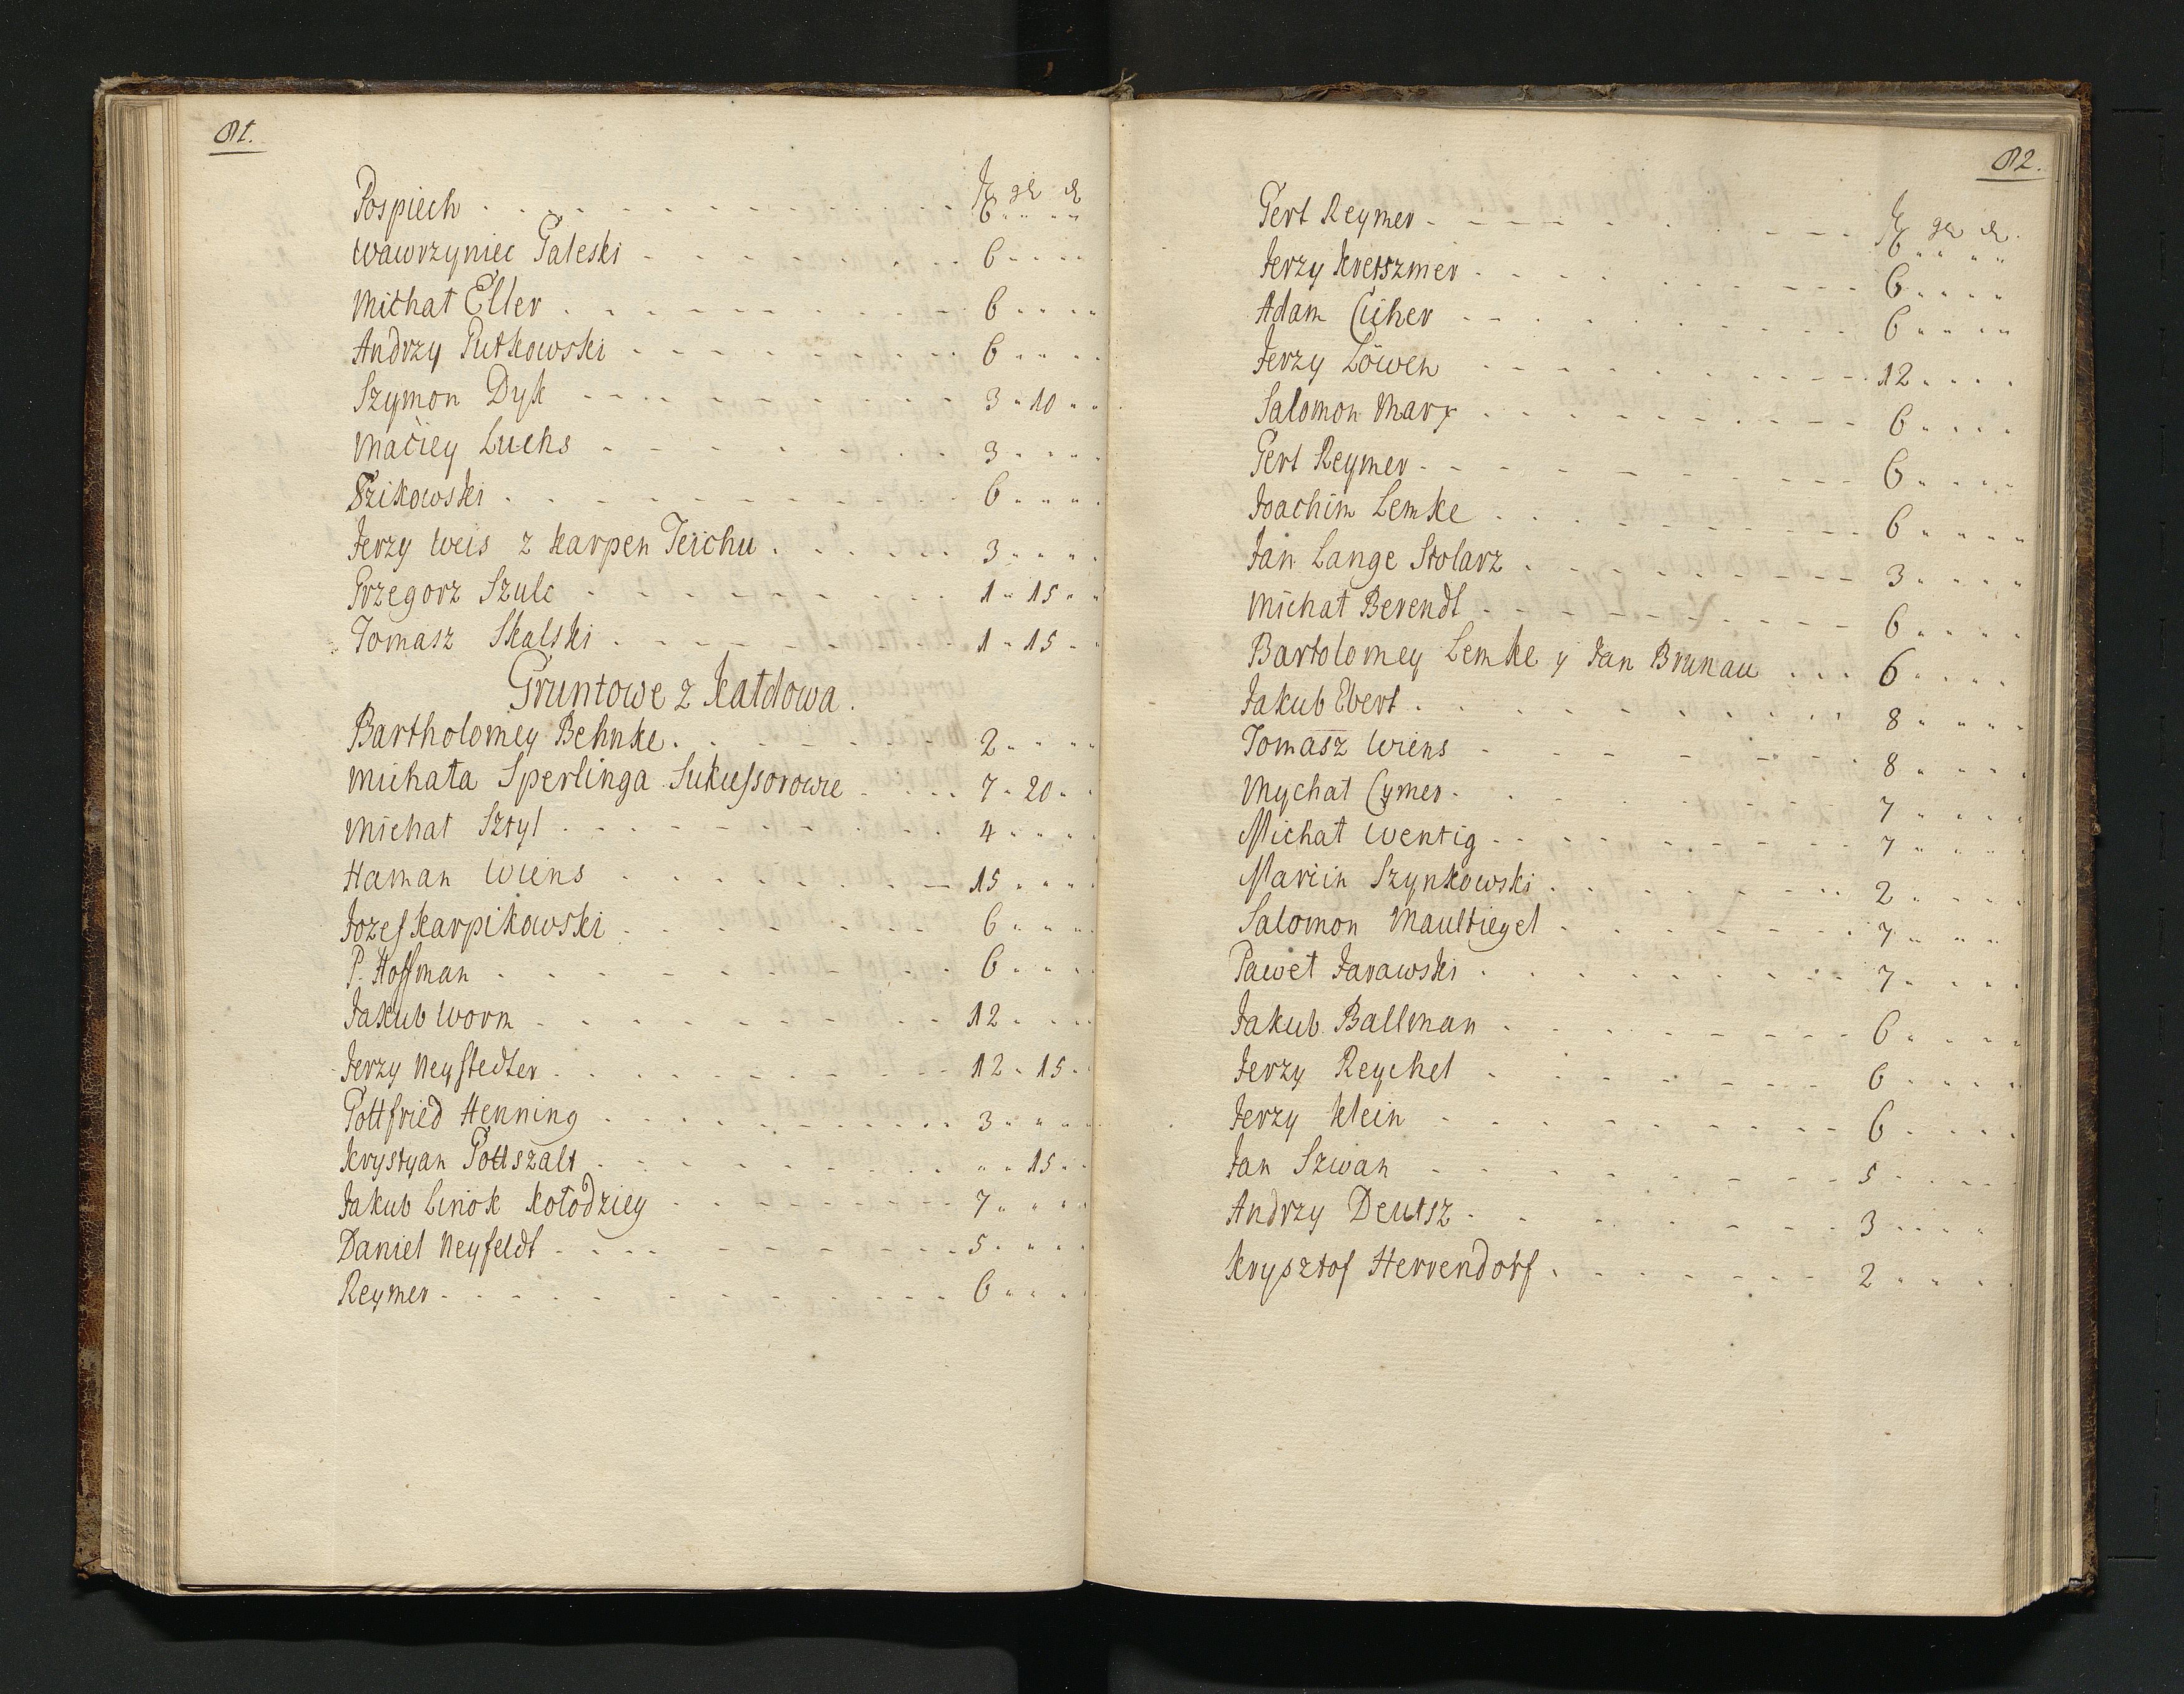 81.
fl gr d
Pospiech - - - 6 " " " "
Wawrzyniec Galeski - - - 6 - - - -
Michał Eller - - - 6 - - - -
Andrzy Putkowski - - - 6 - - - -
Szymon Dyk - - - 3 - 10 - -
Maciey Luchs - - - 3 - - - -
Szikowski - - - 6 - - - -
Jerzy Weis z Karpen Teichu - - - 3 - - - -
Grzegorz Szulc - - - 1 - 15 - -
Tomasz Skalski - - - 1 - 15 - -
Gruntowe z Kałdowa.
Bartholomey Behnke - - - 2 - - - -
Michała Sperlinga Sukussorowie - - - 7 - 20 - -
Michał Sztyl - - - 4 - - - -
Haman Wiens - - - 15 - - - -
Jozef Karpikowski - - - 6 - - - -
P. Hoffman - - - 6 - - - -
Jakub Worm - - - 12 - - - -
Jerzy Neystedter - - - 12 - 15 - -
Gottfried Henning - - - 3 - - - -
Krystyan Gottszalt - - - " " 15 - -
Jakub Linok Kołodziey - - - 7 - - - -
Daniel Neyfeldt - - - 5 - - - -
Reymer - - - 6 - - - -
82.
fl gr d.
Gert Reymer - - - 6 " " " "
Jerzy Kretszmer - - - 6 - - - -
Adam Cüher - - - 6 - - - -
Jerzy Löwen - - - 12 - - - -
Salomon Marx - - - 6 - - - -
Gert Reymer - - - 6 - - - -
Joachim Lemke - - - 6 - - - -
Jan Lange Stolarz - - - 3 - - - -
Michał Berendt - - - 6 - - - -
Bartolomey Lemke y Jan Brunau - - - 6 - - - -
Jakub Ebert - - - 8 - - - -
Tomasz Wiens - - - 8 - - - -
Mychał Cymer - - - 7 - - - -
Michał Wentig - - - 7 - - - -
Marcin Szynkowski - - - 2 - - - -
Salomon Maultiegel - - - 7 - - - -
Paweł Jarawski - - - 7 - - - -
Jakub Ballman - - - 6 - - - -
Jerzy Reychel - - - 6 - - - -
Jerzy Klein - - - 6 - - - -
Jan Szwan - - - 5 - - - -
Andrzy Deutsz - - - 3 - - - -
Krysztof Herrendorf - - - 2 - - - -